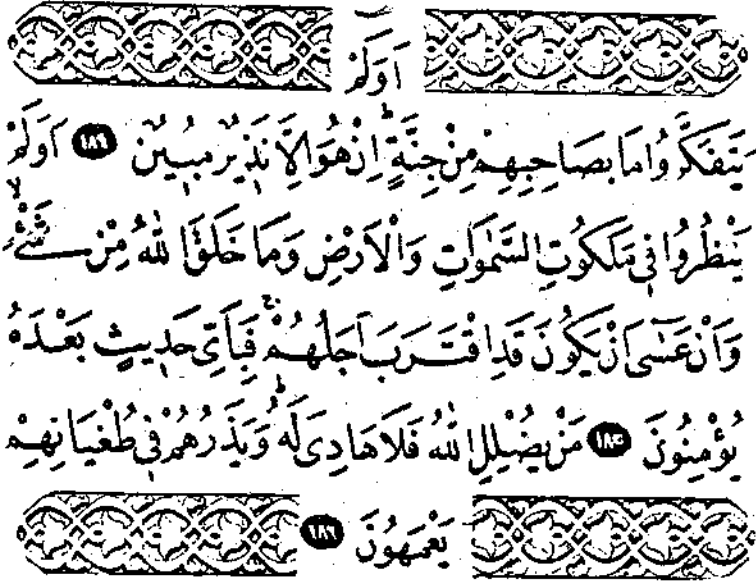 اَوَلَمْ
يَتَفَكَّرُوا مَا بِصَاحِبِهِمْ مِنْ جِنَّةٍ اِنْ هُوَ اِلَّا نَذِيرٌ مُبِينٌ اَوَلَمْ
يَنْظُرُوا فِي مَلَكُوتِ السَّمٰوَاتِ وَالْاَرْضِ وَمَا خَلَقَ اللّٰهُ مِنْ شَيْءٍ
وَاَنْ عَسٰٓى اَنْ يَكُونَ قَدِ اقْتَرَبَ اَجَلُهُمْ فَبِاَيِّ حَدِيثٍ بَعْدَهُ
يُؤْمِنُونَ مَنْ يُضْلِلِ اللّٰهُ فَلَا هَادِيَ لَهُ وَيَذَرُهُمْ فِي طُغْيَانِهِمْ
يَعْمَهُونَ ١٨٦